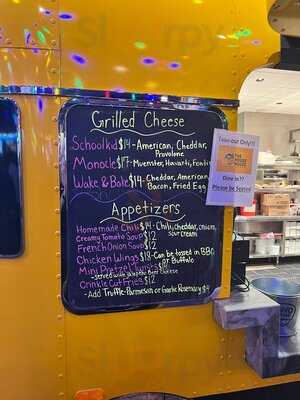 Grilled Cheese
School kid $14 - American, Cheddar,
Provolone
Monocle $17 - Muenster, Havarti, Fontina
Wake & Bake $14 - Cheddar, American,
Bacon, Fried Egg
Appetizers
Homemade Chili $14 - Chili, Cheddar, onion,
sour cream
Creamy Tomato Soup $12
French Onion Soup $12
Chicken Wings $18 - Can be tossed in BBQ
or Buffalo
Mini Pretzel
- served with Jalapeño Beer Cheese
Crinkle Cut Fries $12
- Add Truffle-Parmesan or Garlic Rosemary $4
Take-out Only!
Dine in??
Please be Seated!